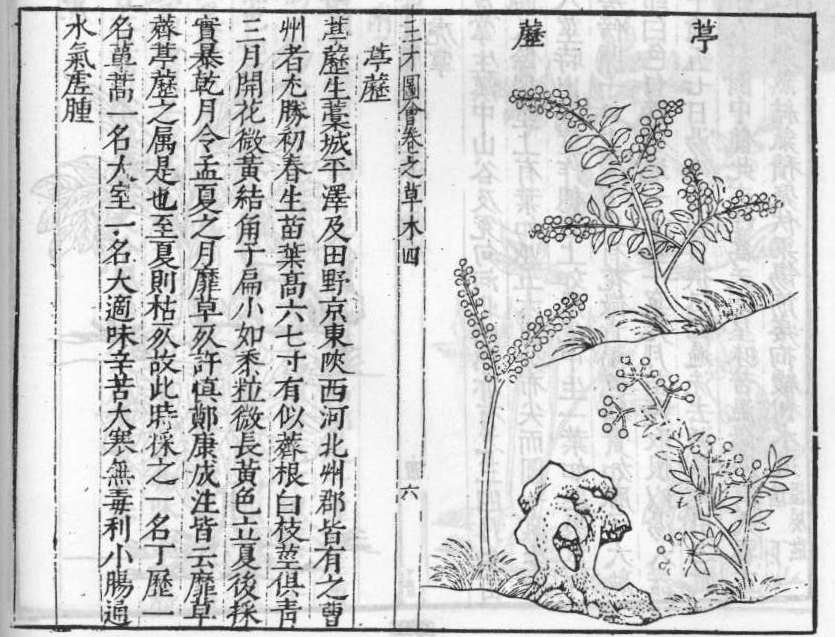 葶藶
三才圖會卷之草木四
六
葶藶
葶藶生藁城平澤及田野京東陝西河北州郡皆有之曹
州者尤勝初春生苗葉高六七寸有似薺根白枝莖俱青
三月開花微黃結角子扁小如黍粒微長黃色立夏後採
實暴乾月令孟夏之月靡草死許慎鄭康成注皆云靡草
薺葶藶之属是也至夏則枯死故此時採之一名丁歷一
名蕇蒿一名大室一名大適味辛苦大寒無毒利小腸通
水氣虛腫